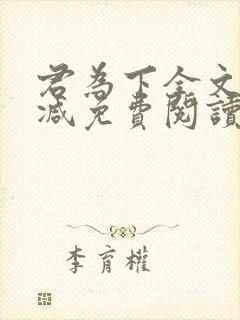 君為下全文
減免費閱讀
李育權